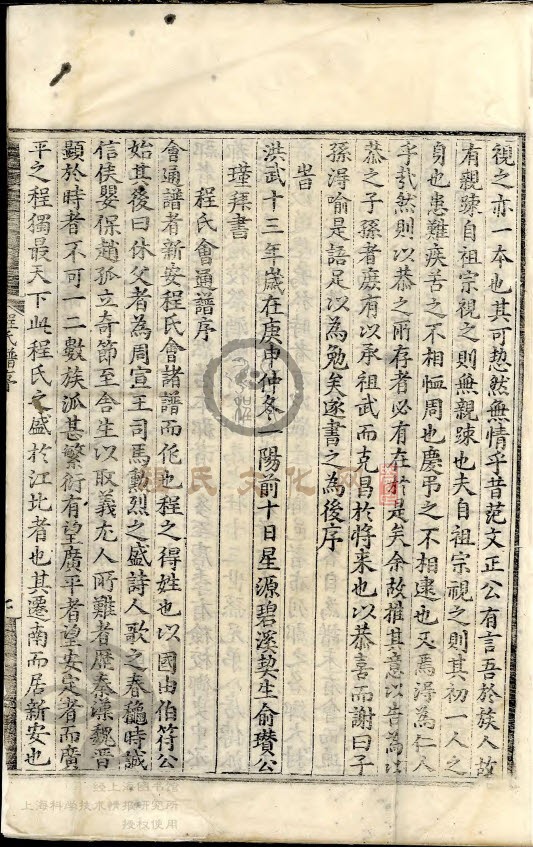 視之亦一本也其可恝然無情乎昔范文正公有言吾於族人故
有親踈自祖宗視之則無親踈也夫自祖宗視之則其初一人之
身也患難疾苦之不相恤周也慶弔之不相逮也又焉淂為仁人
乎哉然則以恭之所存者必有在於是矣余故推其意以告為以
恭之子孫者庻有以承祖武而克昌於將来也以恭喜而謝曰子
孫淂喻是語足以為勉矣遂書之為後序
旹
洪武十三年歲在庚申仲冬一陽前十日星源碧溪契生俞瓚公
瑾拜書
程氏會通譜序
會通譜者新安程氏會諸譜而作也程之得姓也以國由伯符公
始其後曰休父者為周宣王司馬勳烈之盛詩人歌之春龝時誠
信侯嬰保趙孤立奇節至舎生以取義尤人所難者歷秦漢魏晋
顯於時者不可一二數族派甚繁衍有望廣平者望安定者而廣
平之程獨最天下此程氏之盛於江北者也其遷南而居新安也
程氏譜序
氏文化网
经上海图书馆
上海科学技术情报研究所
授权使用